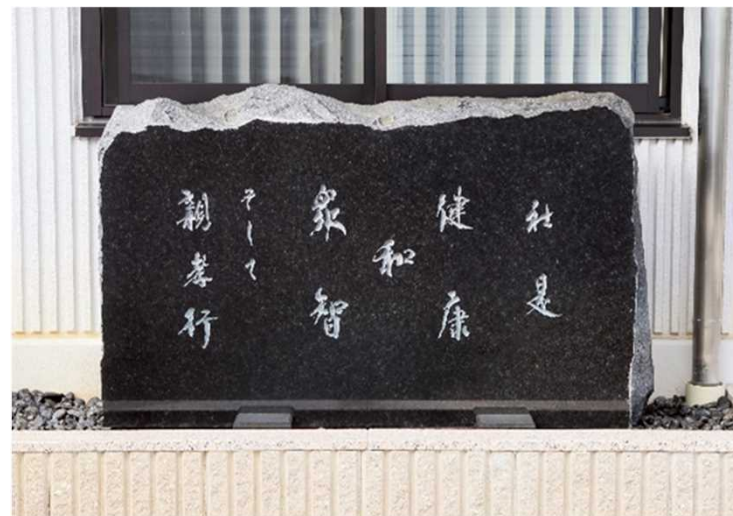 社是
健康
和
衆智
そして
親孝行